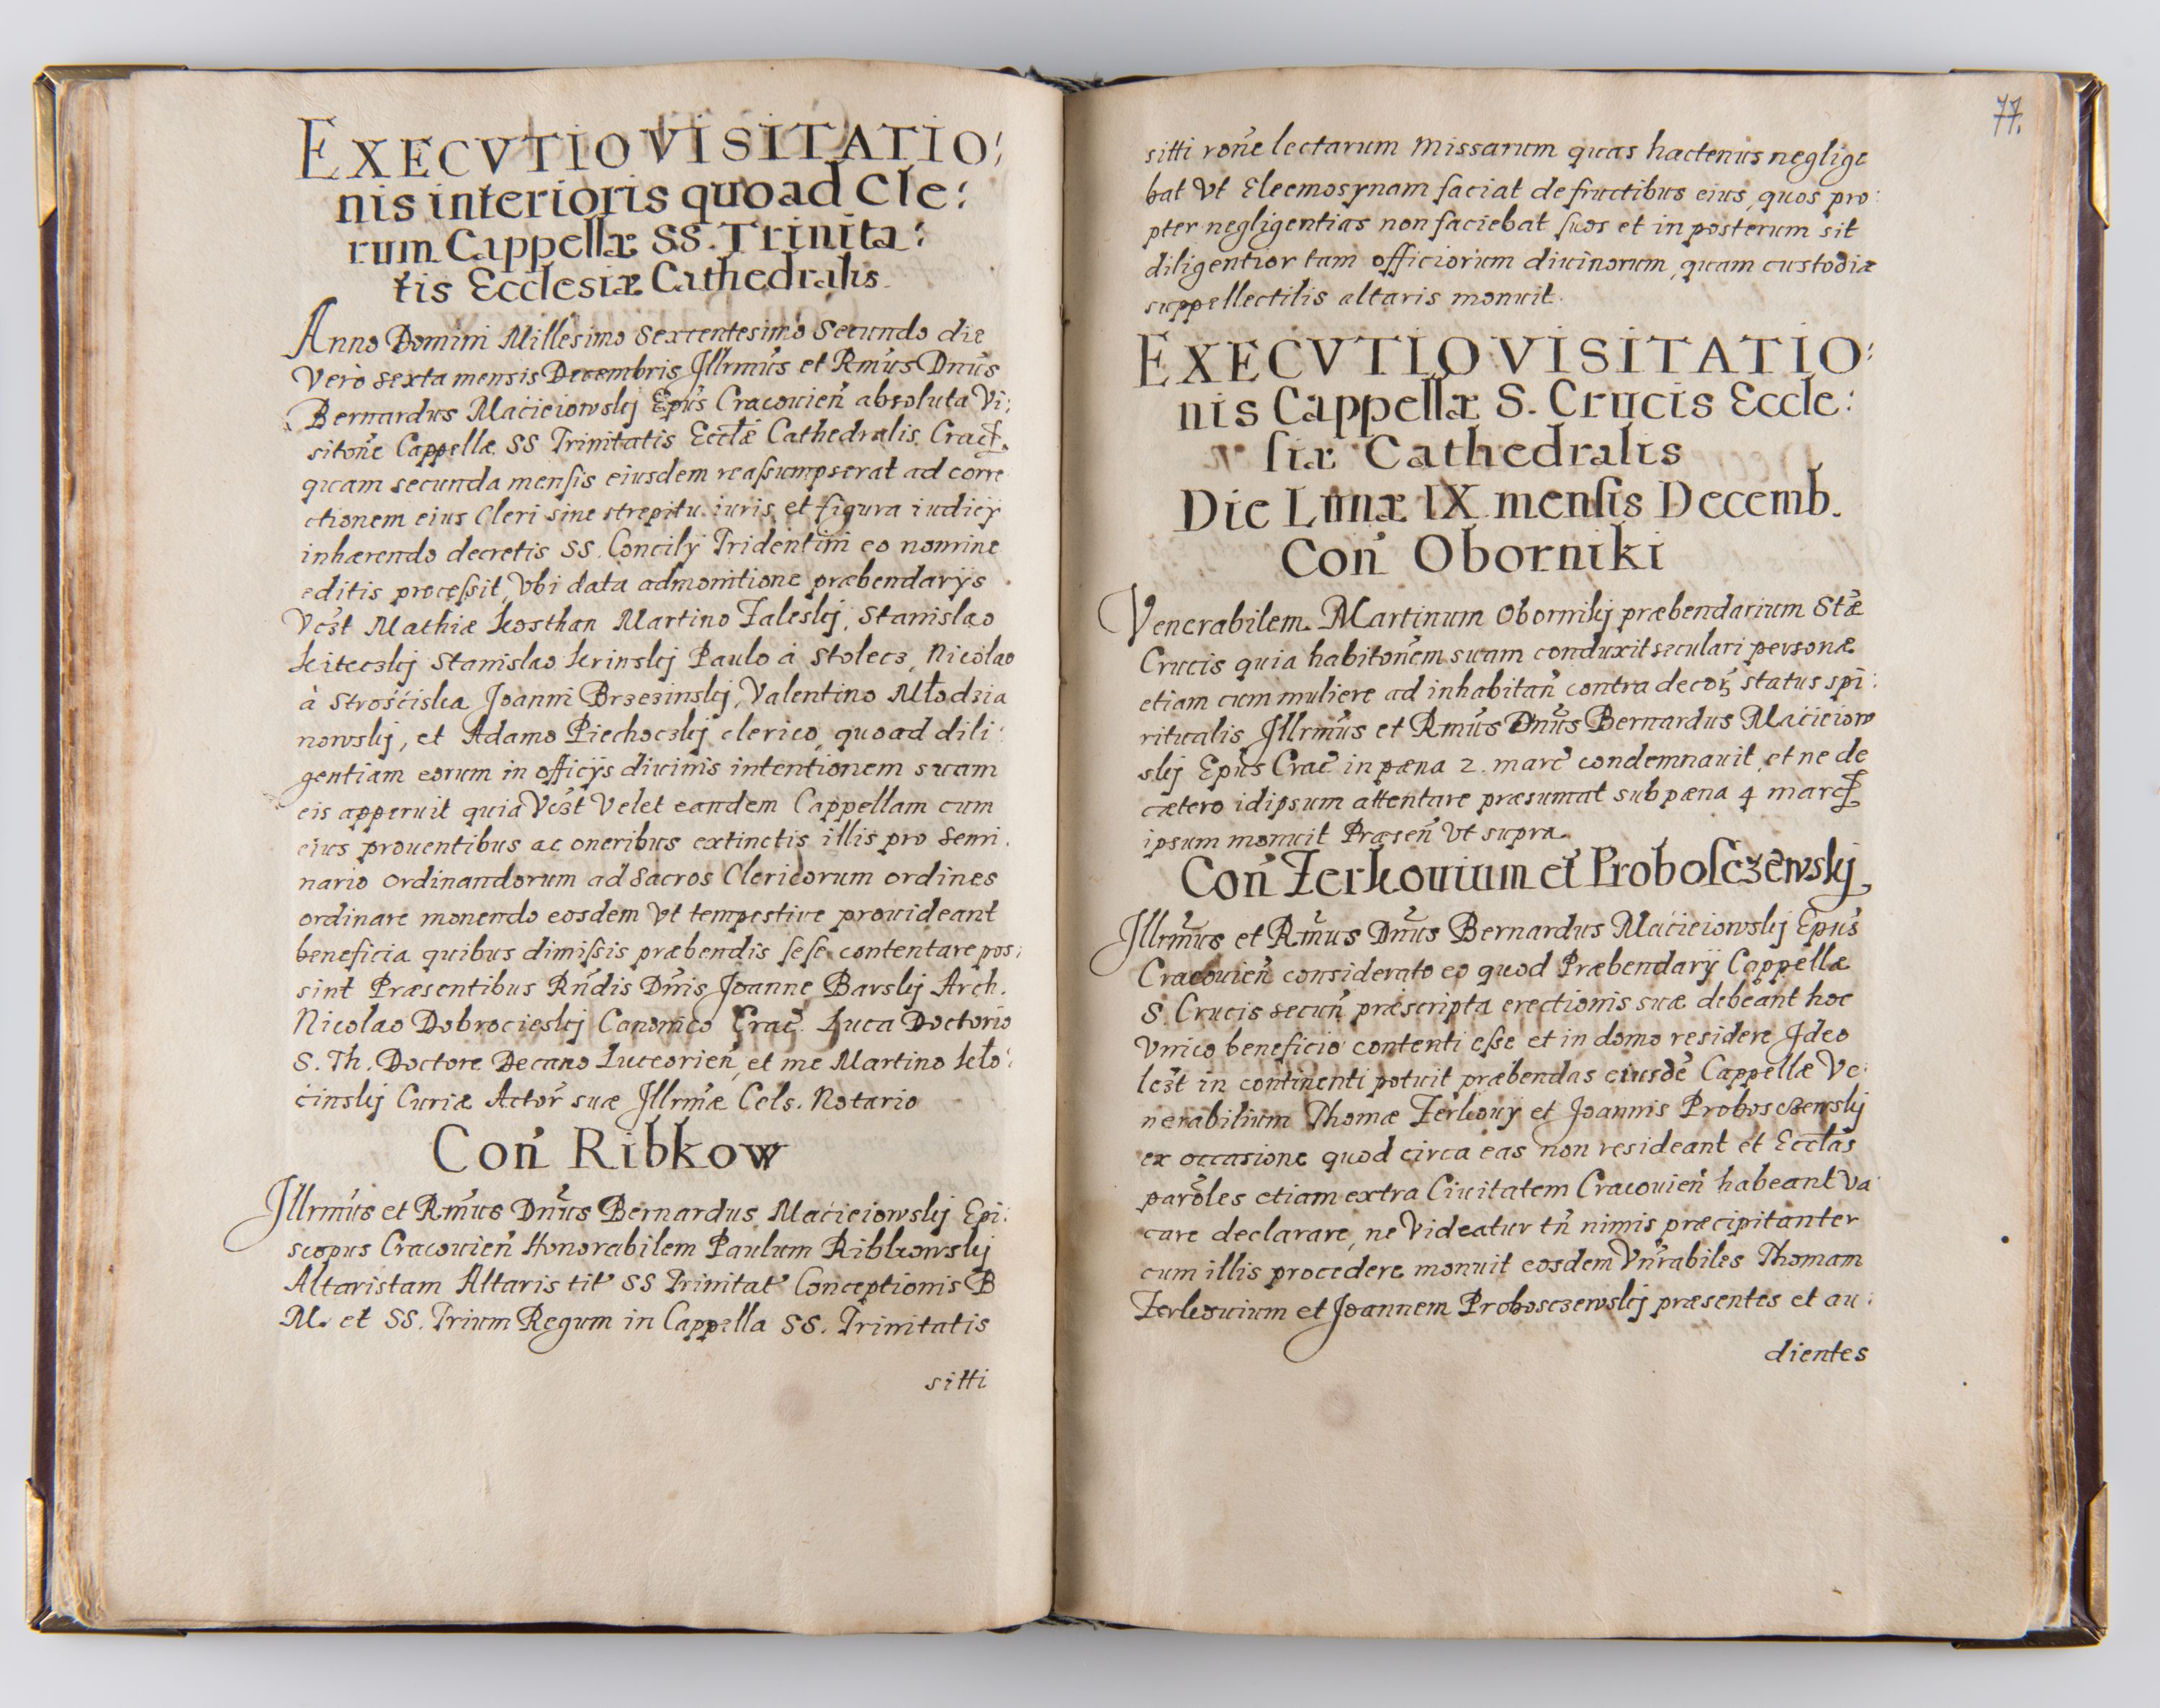 EXECVTIO VISITATIO:
nis interioris quoad Cle:
rum Cappellæ SS. Trinita:
tis Ecclesiæ Cathedralis.
Anno Domini Millesimo Sexcentesimo Secundo die
Vero sexta mensis Decembris Jllrmús et Rmús Dnús
Bernardus Maćieiowskj Epús Cracouień absoluta Vi:
sitońe Cappellæ SS Trinitatis Ecctæ Cathedralis Crac̃.
quam secunda mensis eiusdem reaſsumpserat ad corre
ctionem eius Cleri sine strepitu iuris et figura iudicÿ
inhærendo decretis SS. Concilÿ Tridentini eo nomine
editis proceſsit, Vbi data admonitione præbendarÿs
Vczt Mathiæ Kosthan Martino Zaleskj, Stanislao
Kiteczkj Stanislao Krinskj Paulo à Stolecz, Nicolao
à Strośćiska Joanni Brzezinskj, Valentino Młodzia
nowskj, et Adamo Piechoczkj clerico, quoad dili:
gentiam eorum in officÿs diuinis intentionem suam
eis apperuit quia Vczt Velet eandem Cappellam cum
eius prouentibus ac oneribus extinctis illis pro Semi.
nario Ordinandorum ad Sacros Clericorum ordines
ordinare monendo eosdem Vt tempestiue prouideant
beneficia quibus dimiſsis præbendis ſeſe contentare pos:
sint Præsentibus Rńdis Dńis Joanne Barskj Arch.
Nicolao Dobrocieskj Canonico Crac̃. Luca Doctorio
S. Th. Doctore Decano Luceorień, et me Martino Kło:
ćinskj Curiæ Actoŕ suæ Jllrmæ Cels. Notario
Coń Ribkow
Jllrmús et Rmús Dnús Bernardus Maćieiowskj Epi:
scopus Cracouień Honorabilem Paulum Ribkowskj
Altaristam Altaris tit̃ SS Trinitat̃ Conceptionis B
M. et SS. Trium Regum in Cappella SS. Trinitatis
sitti
77.
sitti rońe lectarum missarum quas hactenus neglige
bat Vt Eleemosynam faciat de fructibus eius, quos pro:
pter negligentias non faciebat ſuos et in posterum sit
diligentior tam officiorum diuinorum, quam custodiæ
suppellectilis altaris monuit.
EXECVTIO VISITATIO:
nis Cappellæ S. Crucis Eccle:
ſiæ Cathedralis
Die Lunæ IX menſis Decemb.
Coń Oborniki
Venerabilem Martinum Obornikj præbendarium Stæ
Crucis quia habitońem suam conduxit seculari personæ
etiam cum muliere ad inhabitań contra decoꝝ status spi:
ritualis Jllrmús et Rmús Dnús Bernardus Maćieiow
skj Epús Crac̃ in pæna 2. marc̃ condemnauit, et ne de
cætero idipsum attentare præsumat sub pæna 4 marc̃
ipsum monuit Præseń Vt supra.
Coń Zerkouium et Proboſczewskj
Jllrmús et Rmús Dnús Bernardus Maćieiowskj Epús
Cracouień considerato eo quod Præbendarÿ Cappellæ
S. Crucis secuń præscripta erectionis suæ debeant hoc
Vnico beneficio contenti eſse et in domo residere Jdeo
lczt in continenti potuit præbendas eiusdẽ Cappellæ Ve:
nerabilium Thomæ Zerkouÿ et Joannis Probosczewskj
ex occasione quod circa eas non resideant et Ecctas
parõles etiam extra Ciuitatem Cracouień habeant Va
care declarare, ne Videatur tń nimis præcipitanter
cum illis procedere monuit eosdem Vńrabiles Thomam
Zerkouium et Joannem Probosczewskj præsentes et au:
dientes